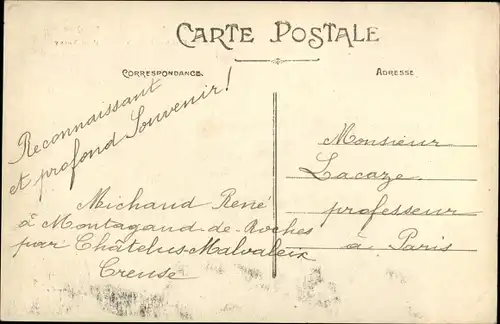 CARTE POSTALE
CORRESPONDANCE.
ADRESSE
Reconnaissant
et profond Souvenir!
Michaud René
à Montagaud-de-Roches
par Châtelus-Malvaleix
Creuse
Monsieur
Lacaze
professeur
à Paris